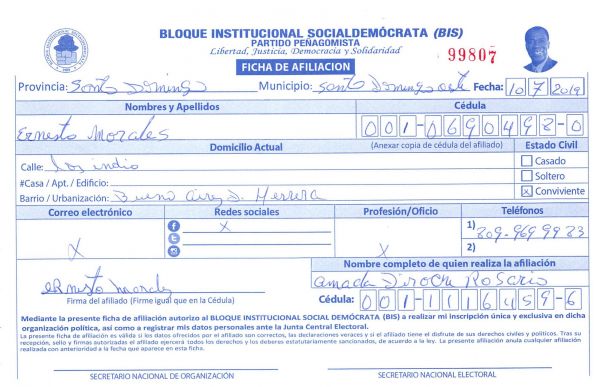 BLOQUE INSTITUCIONAL SOCIALDEMÓCRATA (BIS)
PARTIDO PEÑAGOMISTA
Libertad, Justicia, Democracia y Solidaridad
99807
FICHA DE AFILIACION
Provincia: Santo Domingo Municipio: Santo Domingo este Fecha: 10/7/2019
Nombres y Apellidos Cédula
Ernesto Morales 001-0690498-0
Domicilio Actual (Anexar copia de cédula del afiliado) Estado Civil
Calle: los indio Casado
#Casa / Apt. / Edificio: Soltero
Barrio / Urbanización: Bueno Aires D. Herrera X Conviviente
Correo electrónico Redes sociales Profesión/Oficio Teléfonos
X X X 1) 809-969 9983
2)
Ernesto Morales
Firma del afiliado (Firme igual que en la Cédula)
Nombre completo de quien realiza la afiliación
Amada Rosario
Cédula: 001-1116459-6
Mediante la presente ficha de afiliación autorizo al BLOQUE INSTITUCIONAL SOCIAL DEMÓCRATA (BIS) a realizar mi inscripción única y exclusiva en dicha
organización política, así como a registrar mis datos personales ante la Junta Central Electoral.
La presente ficha de afiliación es válida si los datos ofrecidos por el afiliado son correctos, las declaraciones veraces y si el afiliado tiene el disfrute de sus derechos civiles y políticos. Tras su
recepción, sello y firmas autorizadas el afiliado ejercerá todos los derechos y los deberes estatutariamente sancionados, de acuerdo a la ley. La presente afiliación anula cualquier afiliación
realizada con anterioridad a la fecha que aparece en esta ficha.
SECRETARIO NACIONAL DE ORGANIZACIÓN SECRETARIO NACIONAL ELECTORAL